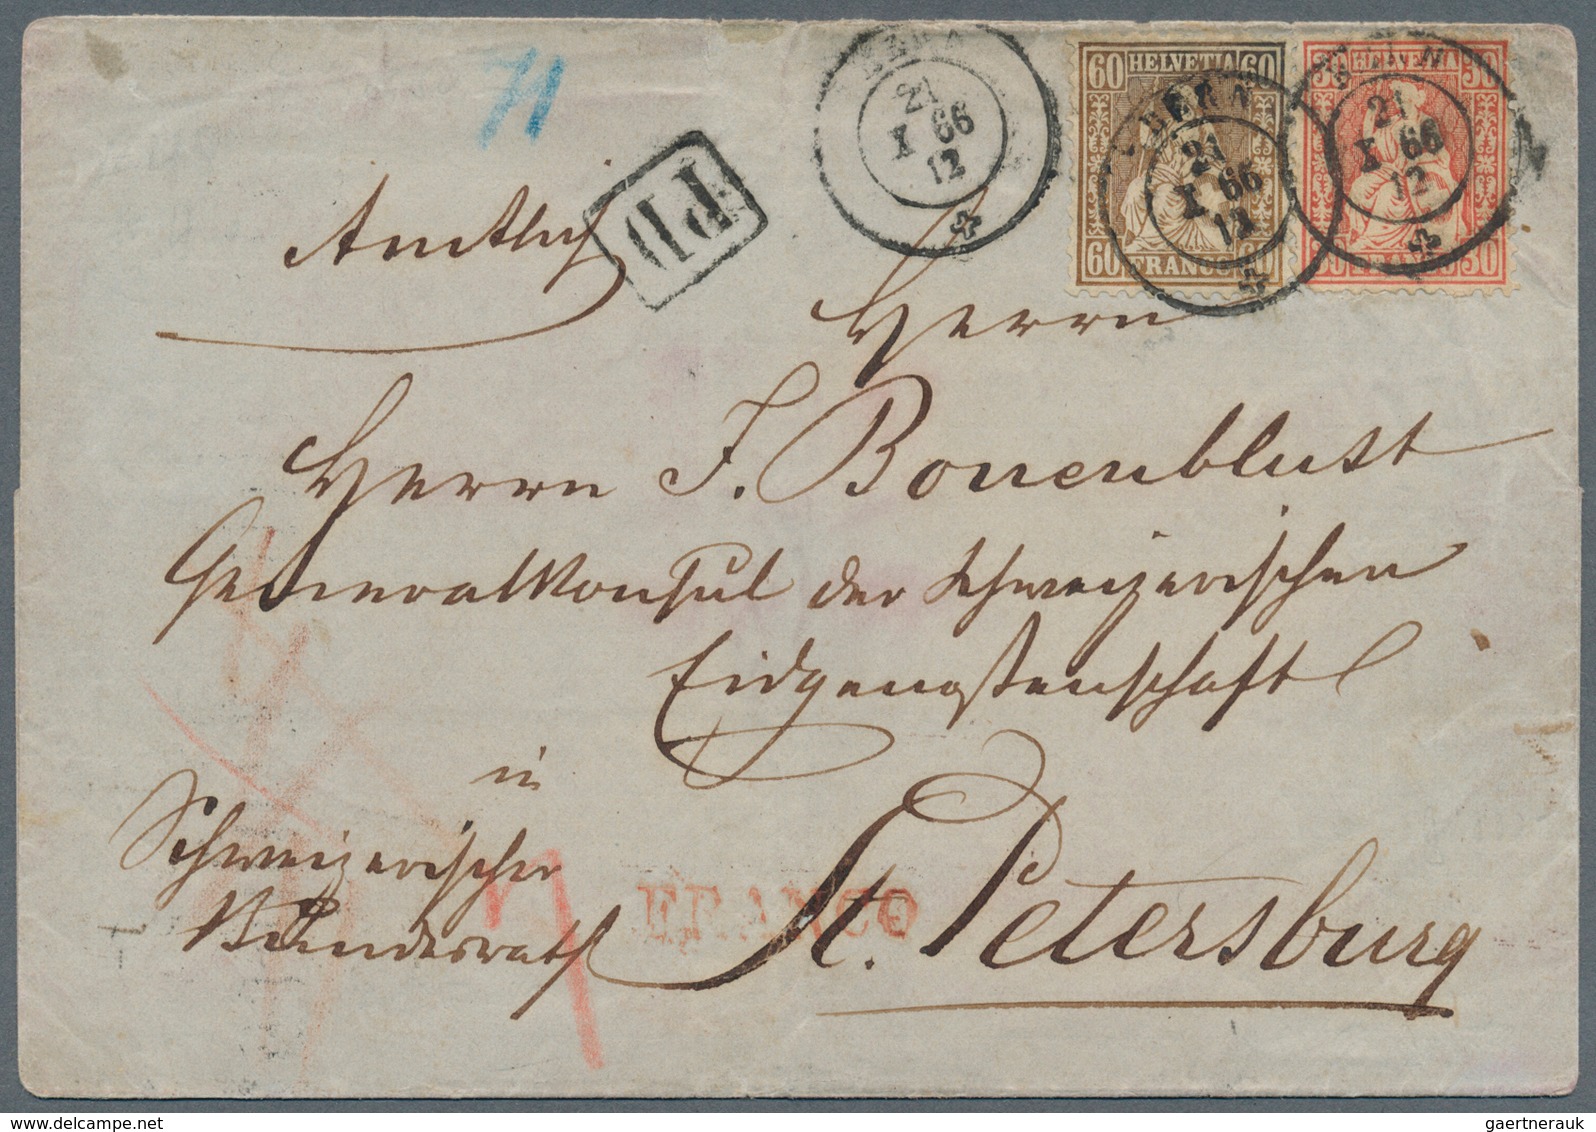 71
PD
BERN
21
X 66
12
60 HELVETIA 60
60 FRANCO 60
BERN
21
X 66
12
30 HELVETIA 30
30 FRANCO 30
BERN
21
X 66
12
Amtlich
Herrn
Herrn J. Bonenblust
Generalkonsul der schweizerischen
Eidgenoßenschaft
in
St. Petersburg
Schweizerischer
Bundesrath
FRANCO
7
gaertnerauk@delcampe.net